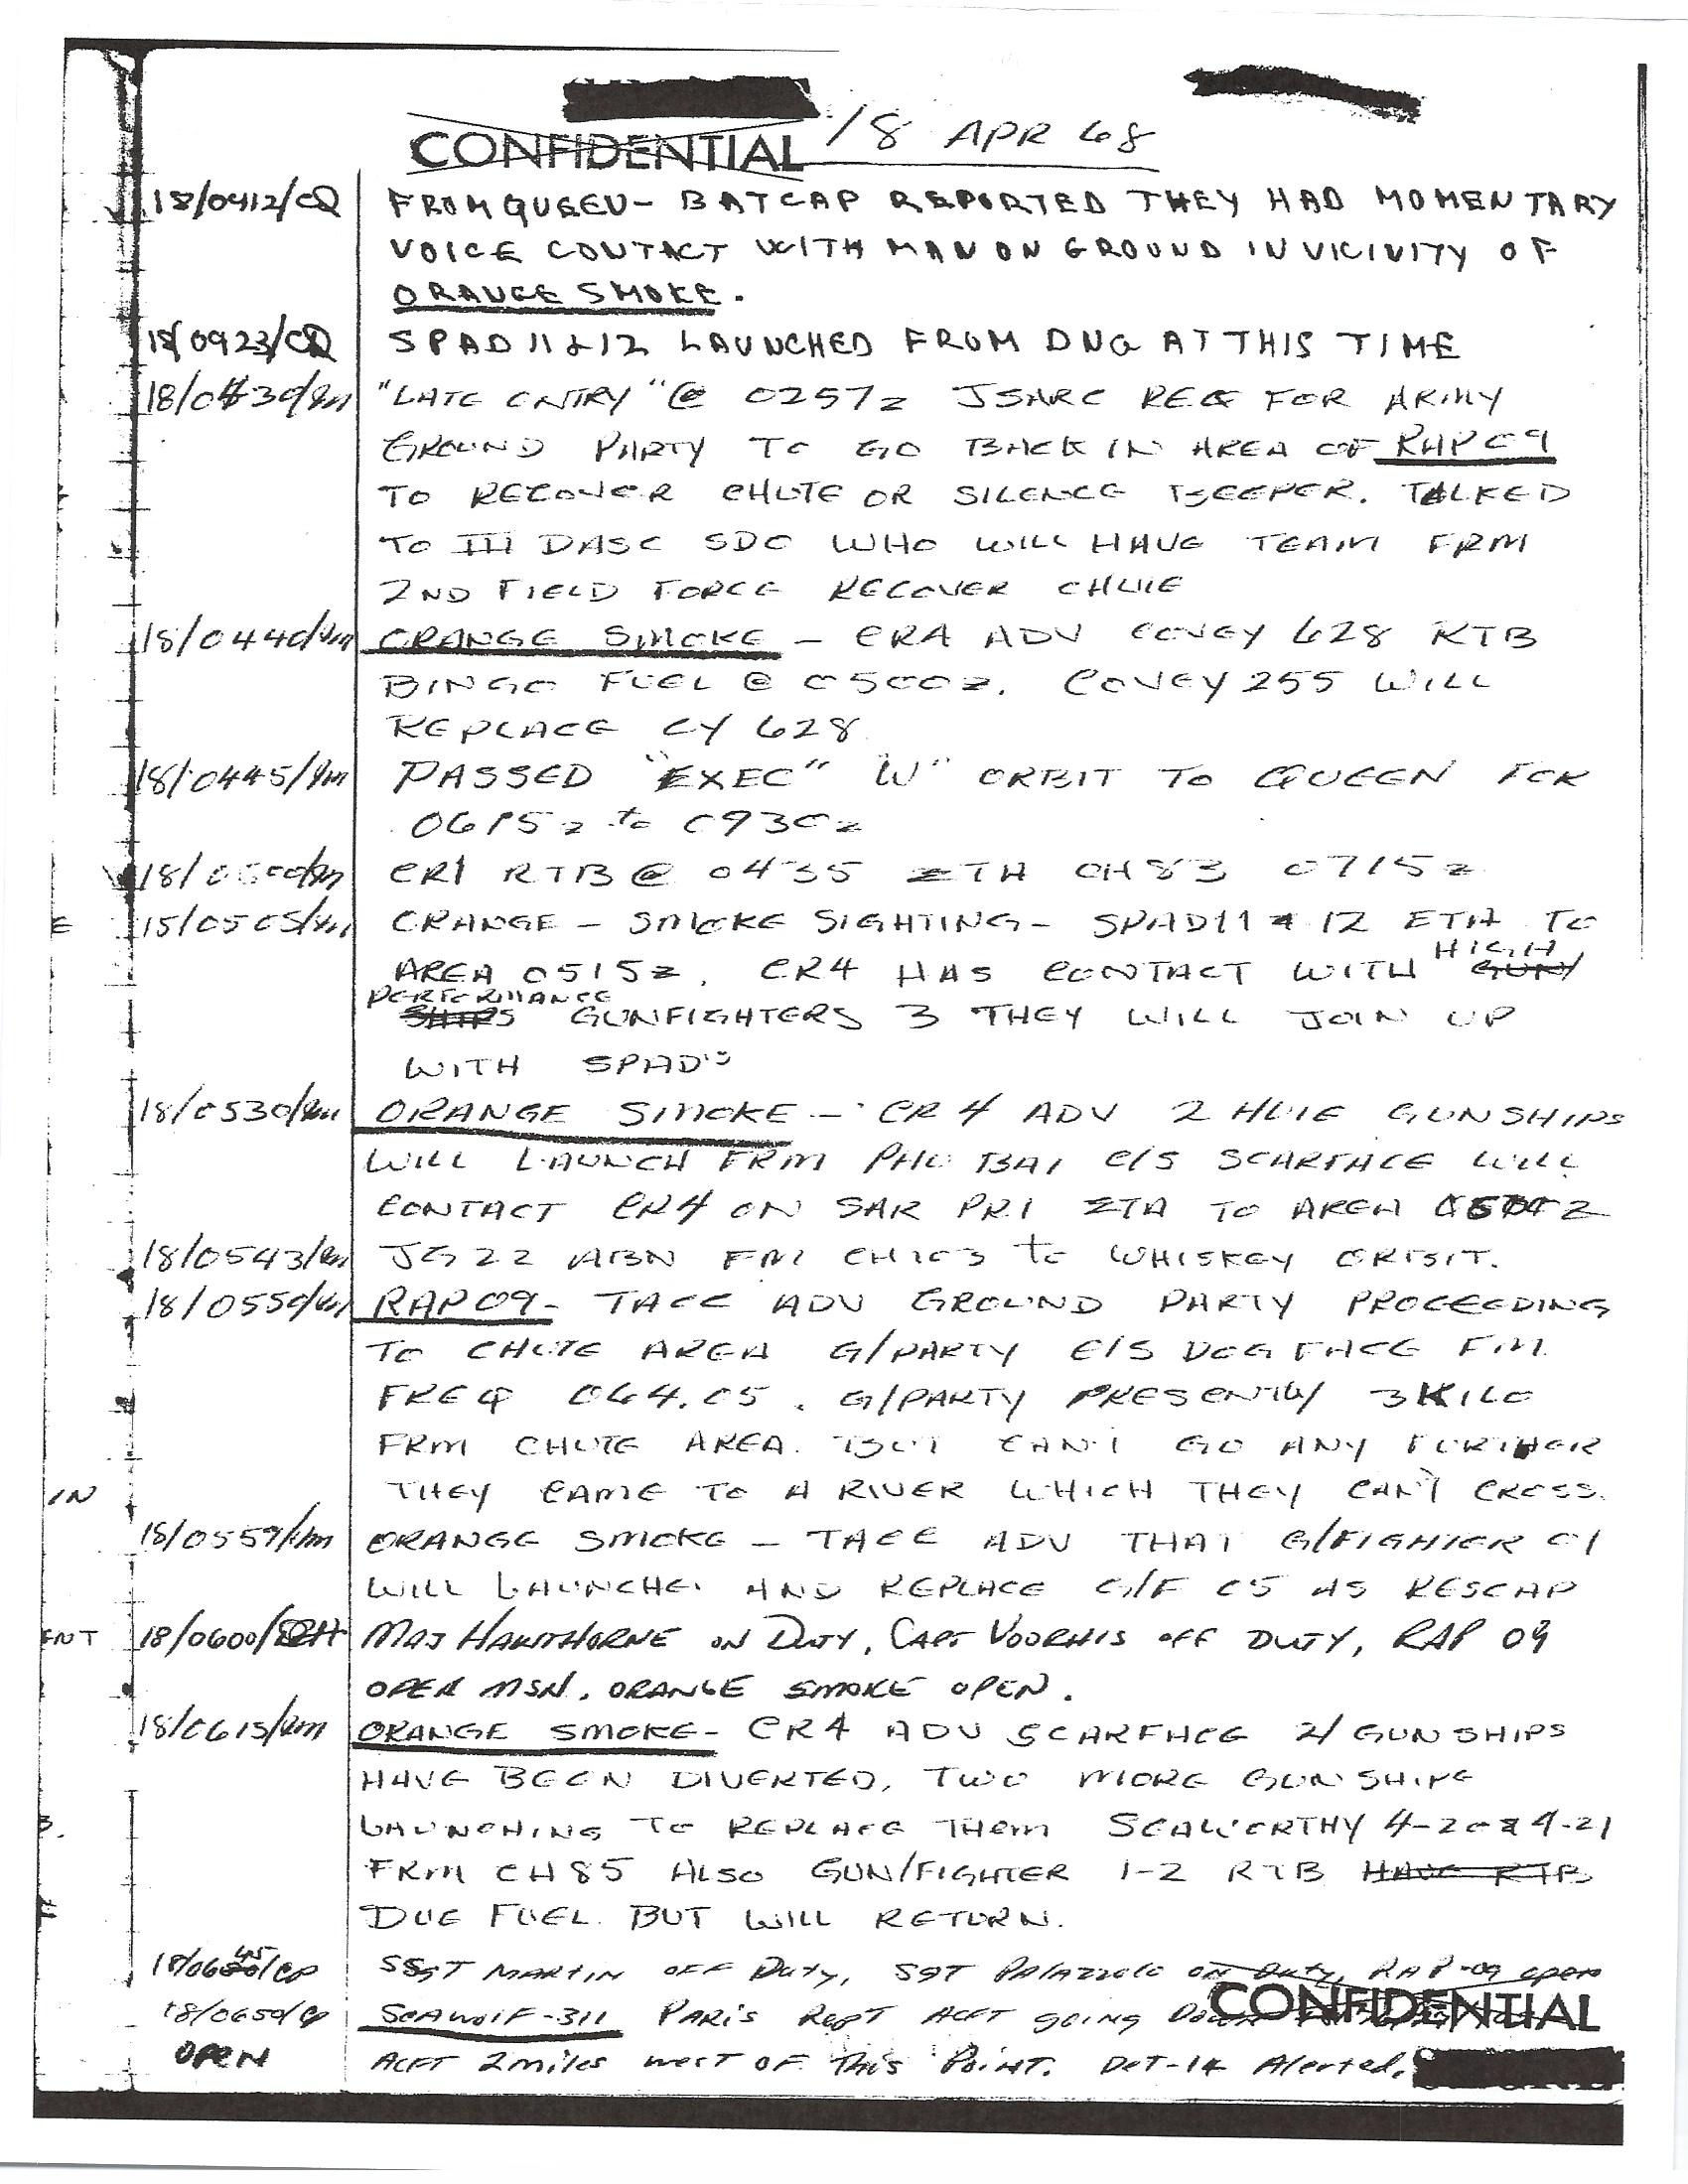 CONFIDENTIAL 18 APR 68
18/0412/CQ FROM QUEEN - BATCAP REPORTED THEY HAD MOMENTARY
VOICE CONTACT WITH MAN ON GROUND IN VICINITY OF
ORANGE SMOKE.
18/0923/CQ SPAD 11 & 12 LAUNCHED FROM DNG AT THIS TIME
"LATE ENTRY" @ 0257z JSARC REQ FOR ARMY
GROUND PARTY TO GO BACK IN AREA OF RAP 09
TO RECOVER CHUTE OR SILENCE BEEPER. TALKED
TO III DASC SDO WHO WILL HAVE TEAM FRM
2ND FIELD FORCE RECOVER CHUTE
18/0440/ ORANGE SMOKE - CR4 ADV COVEY 628 RTB
BINGO FUEL @ 0500z. COVEY 255 WILL
REPLACE CY 628
18/0445/ PASSED "EXEC" "W" ORBIT TO QUEEN FOR
0615z to 0930z
CR1 RTB @ 0435 ETA CH 83 0715z
18/0505/ ORANGE - SMOKE SIGHTING - SPAD 11 & 12 ETA TO
AREA 0515z. CR4 HAS CONTACT WITH HIGH GUN/
PERFORMANCE SHIPS GUNFIGHTERS 3 THEY WILL JOIN UP
WITH SPAD'S
18/0530/ ORANGE SMOKE - CR4 ADV 2 HUIE GUNSHIPS
WILL LAUNCH FRM PHU BAI C/S SCARFACE WILL
CONTACT CR4 ON SAR PRI ETA TO AREA
18/0543/ JG 22 ABN FM CH 103 to WHISKEY ORBIT.
18/0550/ RAP 09 - TACC ADV GROUND PARTY PROCEEDING
TO CHUTE AREA G/PARTY C/S DOGFACE FM
FREQ 064.05. G/PARTY PRESENTLY 3 KILO
FRM CHUTE AREA. BUT CAN'T GO ANY FURTHER
THEY CAME TO A RIVER WHICH THEY CAN'T CROSS.
IN
18/0559/ ORANGE SMOKE - TACC ADV THAT G/FIGHTER 01
WILL LAUNCHE. AND REPLACE G/F 05 AS RESCAP
ENT 18/0600/ MAJ HAWTHORNE ON DUTY, CAPT VOORHIS OFF DUTY, RAP 09
OPEN MSN. ORANGE SMOKE OPEN.
18/0615/ ORANGE SMOKE - CR4 ADV SCARFACE 2/GUNSHIPS
HAVE BEEN DIVERTED, TWO MORE GUNSHIPS
LAUNCHING TO REPLACE THEM SEAWORTHY 4-20 & 4-21
FRM CH 85 ALSO GUN/FIGHTER 1-2 RTB HAVE RTB
DUE FUEL. BUT WILL RETURN.
SSGT MARTIN OFF DUTY, SGT PALAZZOLO ON DUTY, RAP-09 OPEN
18/0650/CP SEAWOLF-311 PARIS REPT ACFT GOING DOWN
CONFIDENTIAL
OPEN ACFT 2 miles WEST OF THIS POINT. DET-14 Alerted.